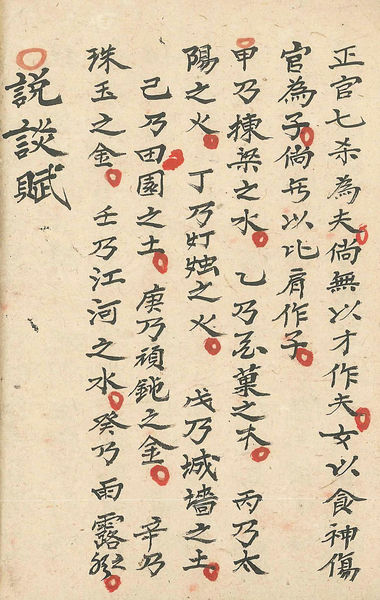 正官七杀為夫倘無以才作夫女以食神傷
官為子倘无以比肩作子
甲乃棟梁之水 乙乃花菓之木 丙乃太
陽之火 丁乃灯烛之火 戊乃城墻之土
己乃田園之土 庚乃頑鈍之金 辛乃
珠玉之金 壬乃江河之水 癸乃雨露
説談賦